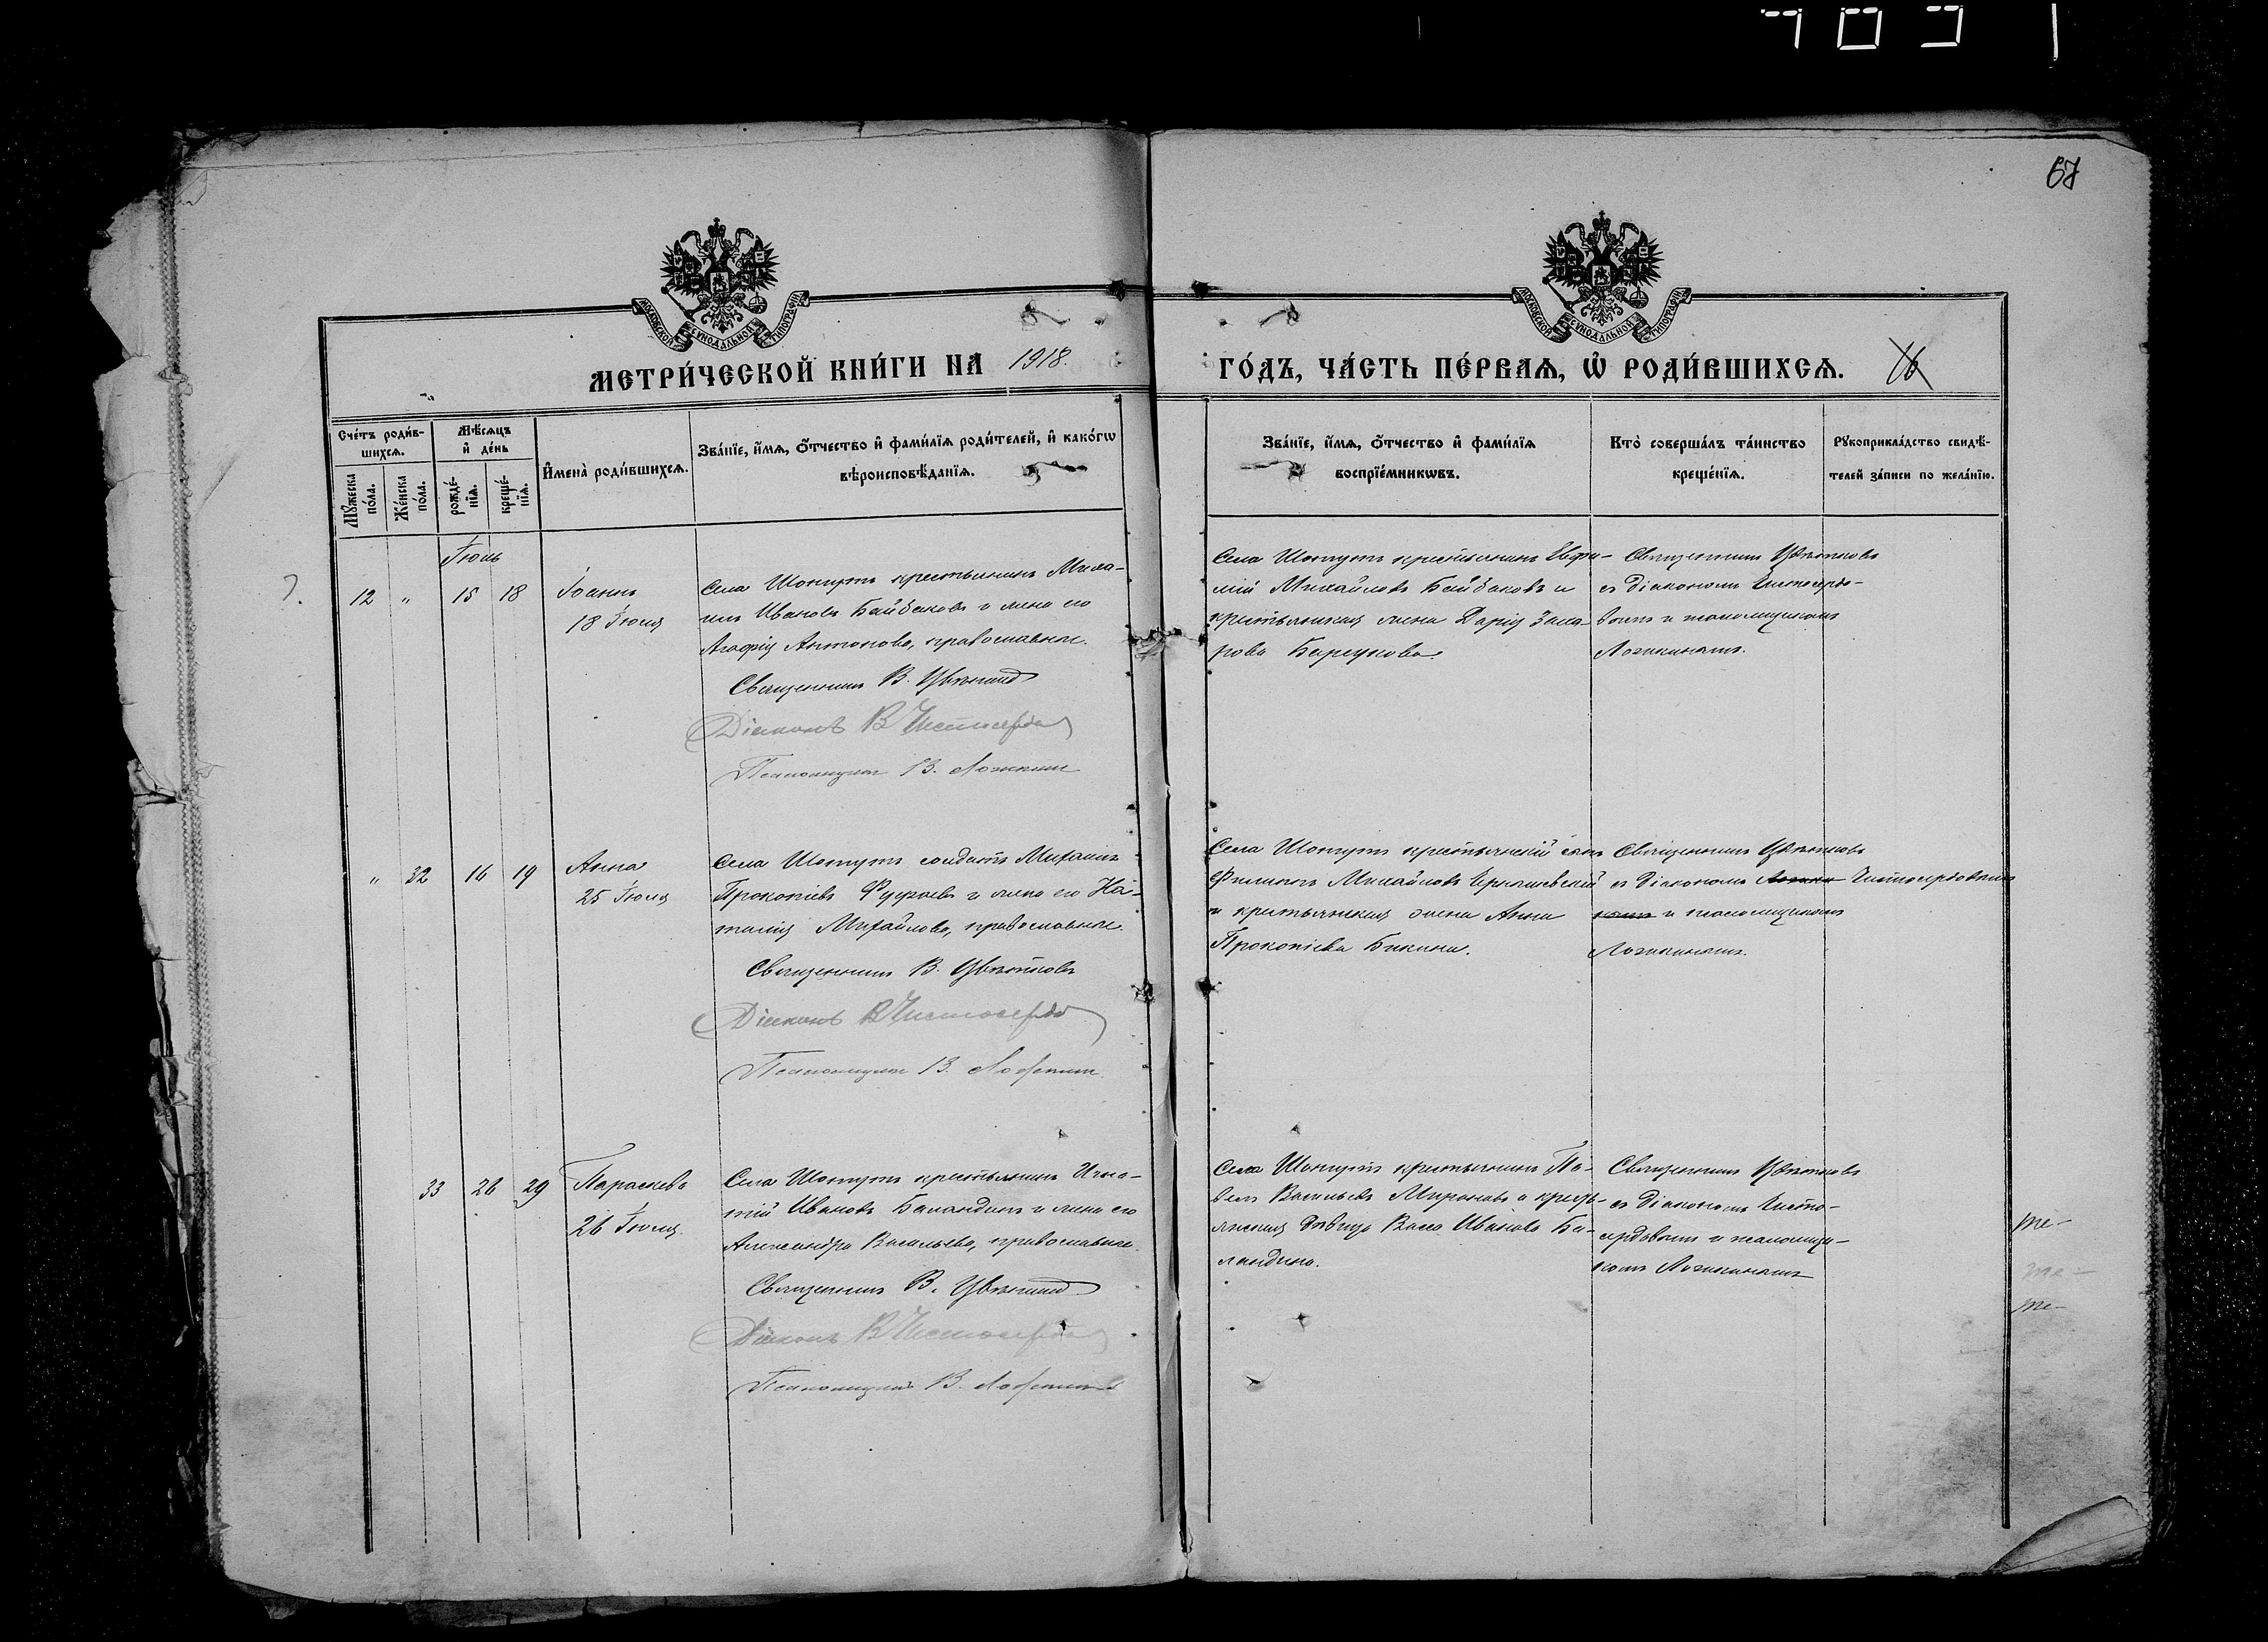 67
МОСКОВСКОЙ СУНОДАЛЬНОЙ ТИПОГРАФІИ
МОСКОВСКОЙ СУНОДАЛЬНОЙ ТИПОГРАФІИ
МЕТРИ́ЧЕСКОЙ КНИ́ГИ НА 1918.
ГО́ДЪ, ЧА́СТЬ ПЕ́РВАѦ, Ѡ҆ РОДИ́ВШИХСѦ. 16
Сче́тъ роди́в-
шихсѧ.
Мꙋ́жеска
по́ла.
Же́нска
по́ла.
Мѣ́сѧцъ
и҆ де́нь
рожде́-
нїѧ.
креще́-
нїѧ.
И҆мена̀ роди́вшихсѧ.
Зва́нїе, и҆́мѧ, ѻ҆́тчество и҆ фами́лїѧ роди́телей, и҆ како́гѡ
вѣроисповѣ́данїѧ.
Зва́нїе, и҆́мѧ, ѻ҆́тчество и҆ фами́лїѧ
воспрїе́мникѡвъ.
Кто̀ соверша́лъ та́инство
креще́нїѧ.
Рꙋкоприкла́дство свидѣ́-
телей за́писи по жела́нїю.
12 " 15 18
Іоаннъ
18 Іюля
Села крестьянинъ Миха-
илъ Ивановъ Байбаковъ и жена его
Агафія Антонова, православные.
Священникъ В. Цвѣтковъ
Діаконъ В Чистосердо
Псаломщикъ В. Ложкинъ
Села крестьянинъ Евфи-
мій Михайловъ Байбаковъ и
крестьянская жена Дарія Заха-
рова
Священникъ Цвѣтковъ
съ діакономъ Чистосердо-
вымъ и псаломщикомъ
Ложкинымъ.
" 32 16 19
Анна
25 Іюля
Села солдатъ Михаилъ
Прокопіевъ и жена его На-
талія Михайлова, православные.
Священникъ В. Цвѣтковъ
Діаконъ В Чистосердо
Псаломщикъ В. Ложкинъ
Села крестьянскій сынъ
Филиппъ Михайловъ Чернышевскій
и крестьянская жена Анна
Прокопіева Бикина.
Священникъ Цвѣтковъ
съ діакономъ Чистосердовымъ
и псаломщикомъ
Ложкинымъ.
33 26 29
Параскева
26 Іюля
Села крестьянинъ Игна-
тій Ивановъ Баландинъ и жена его
Александра Васильева, православные.
Священникъ В. Цвѣтковъ
Діаконъ В Чистосердо
Псаломщикъ В. Ложкинъ
Села крестьянинъ Па-
велъ Васильевъ Мироновъ и кресть-
янская дѣвица Васса Иванова Ба-
ландина.
Священникъ Цвѣтковъ
съ діакономъ Чисто-
сердовымъ и псаломщи-
комъ Ложкинымъ